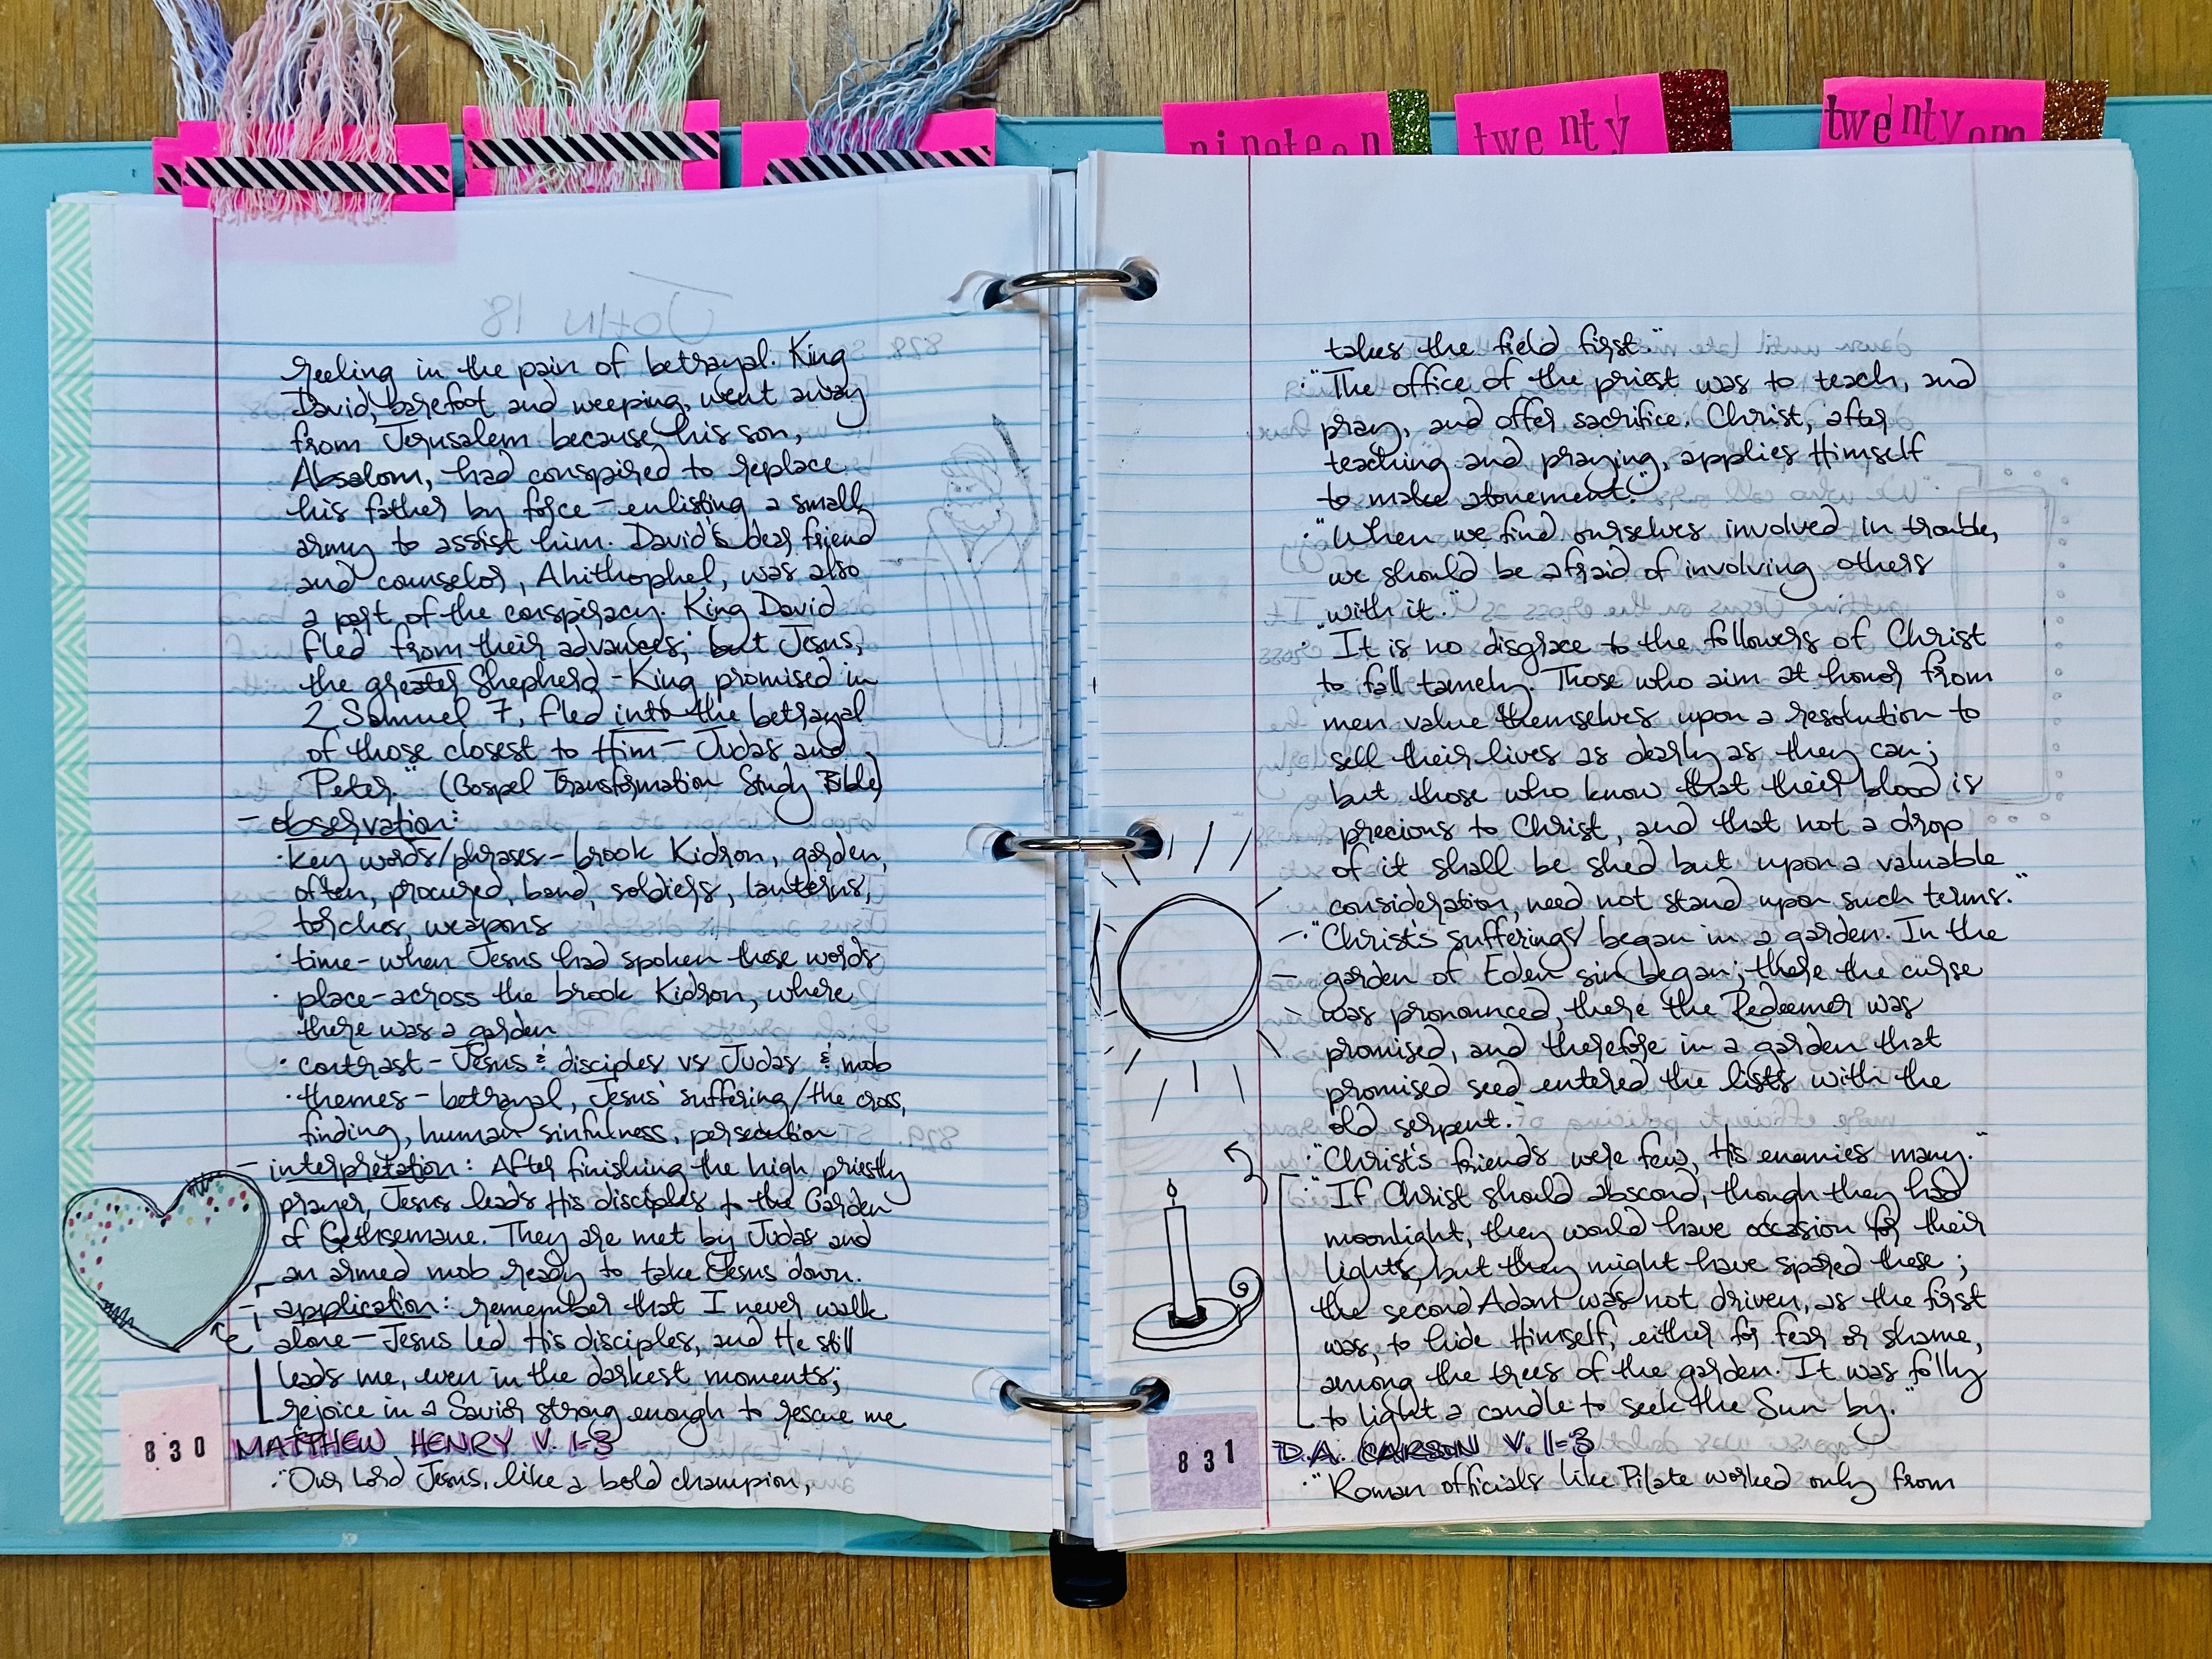 nineteen
twenty
twenty one
reeling in the pain of betrayal. King
David, barefoot and weeping, went away
from Jerusalem because his son,
Absalom, had conspired to replace
his father by force - enlisting a small
army to assist him. David's dear friend
and counselor, Ahithophel, was also
a part of the conspiracy. King David
fled from their advances; but Jesus,
the greater Shepherd-King promised in
2 Samuel 7, fled into the betrayal
of those closest to Him - Judas and
Peter." (Gospel Transformation Study Bible)
- observation:
· key words/phrases - brook Kidron, garden,
often, procured, band, soldiers, lanterns,
torches, weapons
· time - when Jesus had spoken these words
· place - across the brook Kidron, where
there was a garden
· contrast - Jesus & disciples vs Judas & mob
· themes - betrayal, Jesus' suffering/the cross,
finding, human sinfulness, persecution
- interpretation: After finishing the high priestly
prayer, Jesus leads His disciples to the Garden
of Gethsemane. They are met by Judas and
an armed mob ready to take Jesus down.
- application: remember that I never walk
alone - Jesus led His disciples, and He still
leads me, even in the darkest moments;
rejoice in a Savior strong enough to rescue me
830 MATTHEW HENRY V. 1-3
· "Our Lord Jesus, like a bold champion,
takes the field first."
· "The office of the priest was to teach, and
pray, and offer sacrifice. Christ, after
teaching and praying, applies Himself
to make atonement."
· "When we find ourselves involved in trouble,
we should be afraid of involving others
with it."
· "It is no disgrace to the followers of Christ
to fall tamely. Those who aim at honor from
men value themselves upon a resolution to
sell their lives as dearly as they can;
but those who know that their blood is
precious to Christ, and that not a drop
of it shall be shed but upon a valuable
consideration, need not stand upon such terms."
· "Christ's sufferings began in a garden. In the
garden of Eden sin began; there the curse
was pronounced, there the Redeemer was
promised, and therefore in a garden that
promised seed entered the lists with the
old serpent."
· "Christ's friends were few, His enemies many."
· "If Christ should abscond, though they had
moonlight, they would have occasion for their
lights, but they might have spared these;
the second Adam was not driven, as the first
was, to hide Himself, either for fear or shame,
among the trees of the garden. It was folly
to light a candle to seek the Sun by."
831 D.A. CARSON V. 1-3
· "Roman officials like Pilate worked only from